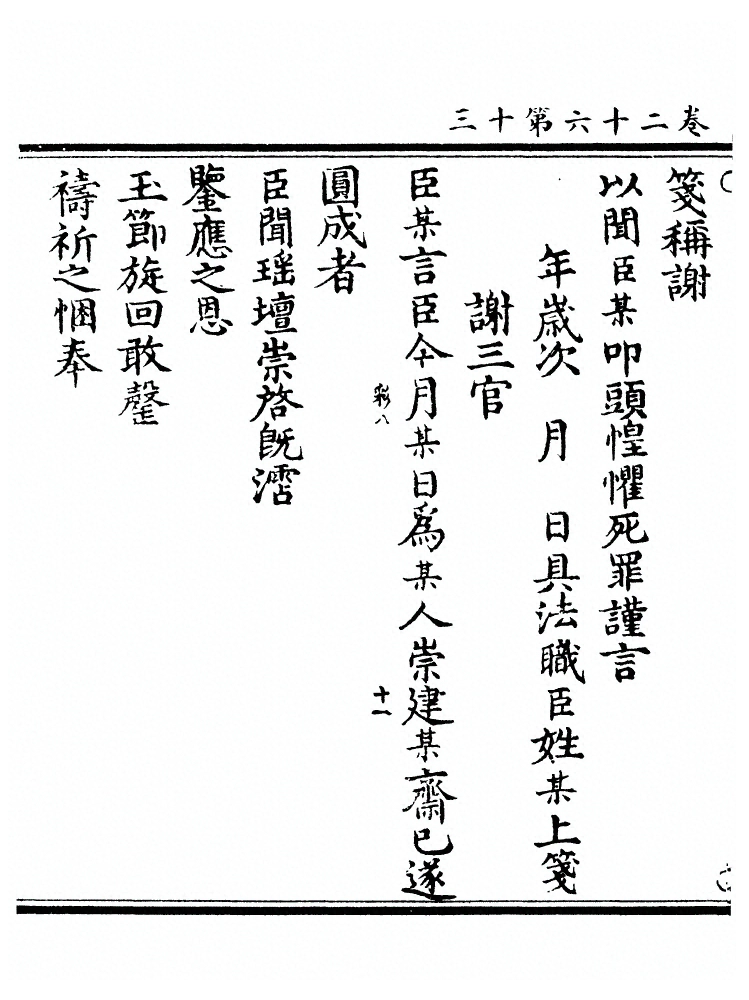 三十第六十二卷
箋稱謝
以聞臣某叩頭惶懼死罪謹言
年歲次　月　日具法職臣姓某上箋
謝三官
臣某言臣今月某日爲某人崇建某齋已遂
彩八
十一
圓成者
臣聞瑶壇崇啓旣霑
鑒應之恩
玉節旋回敢罄
禱祈之悃奉